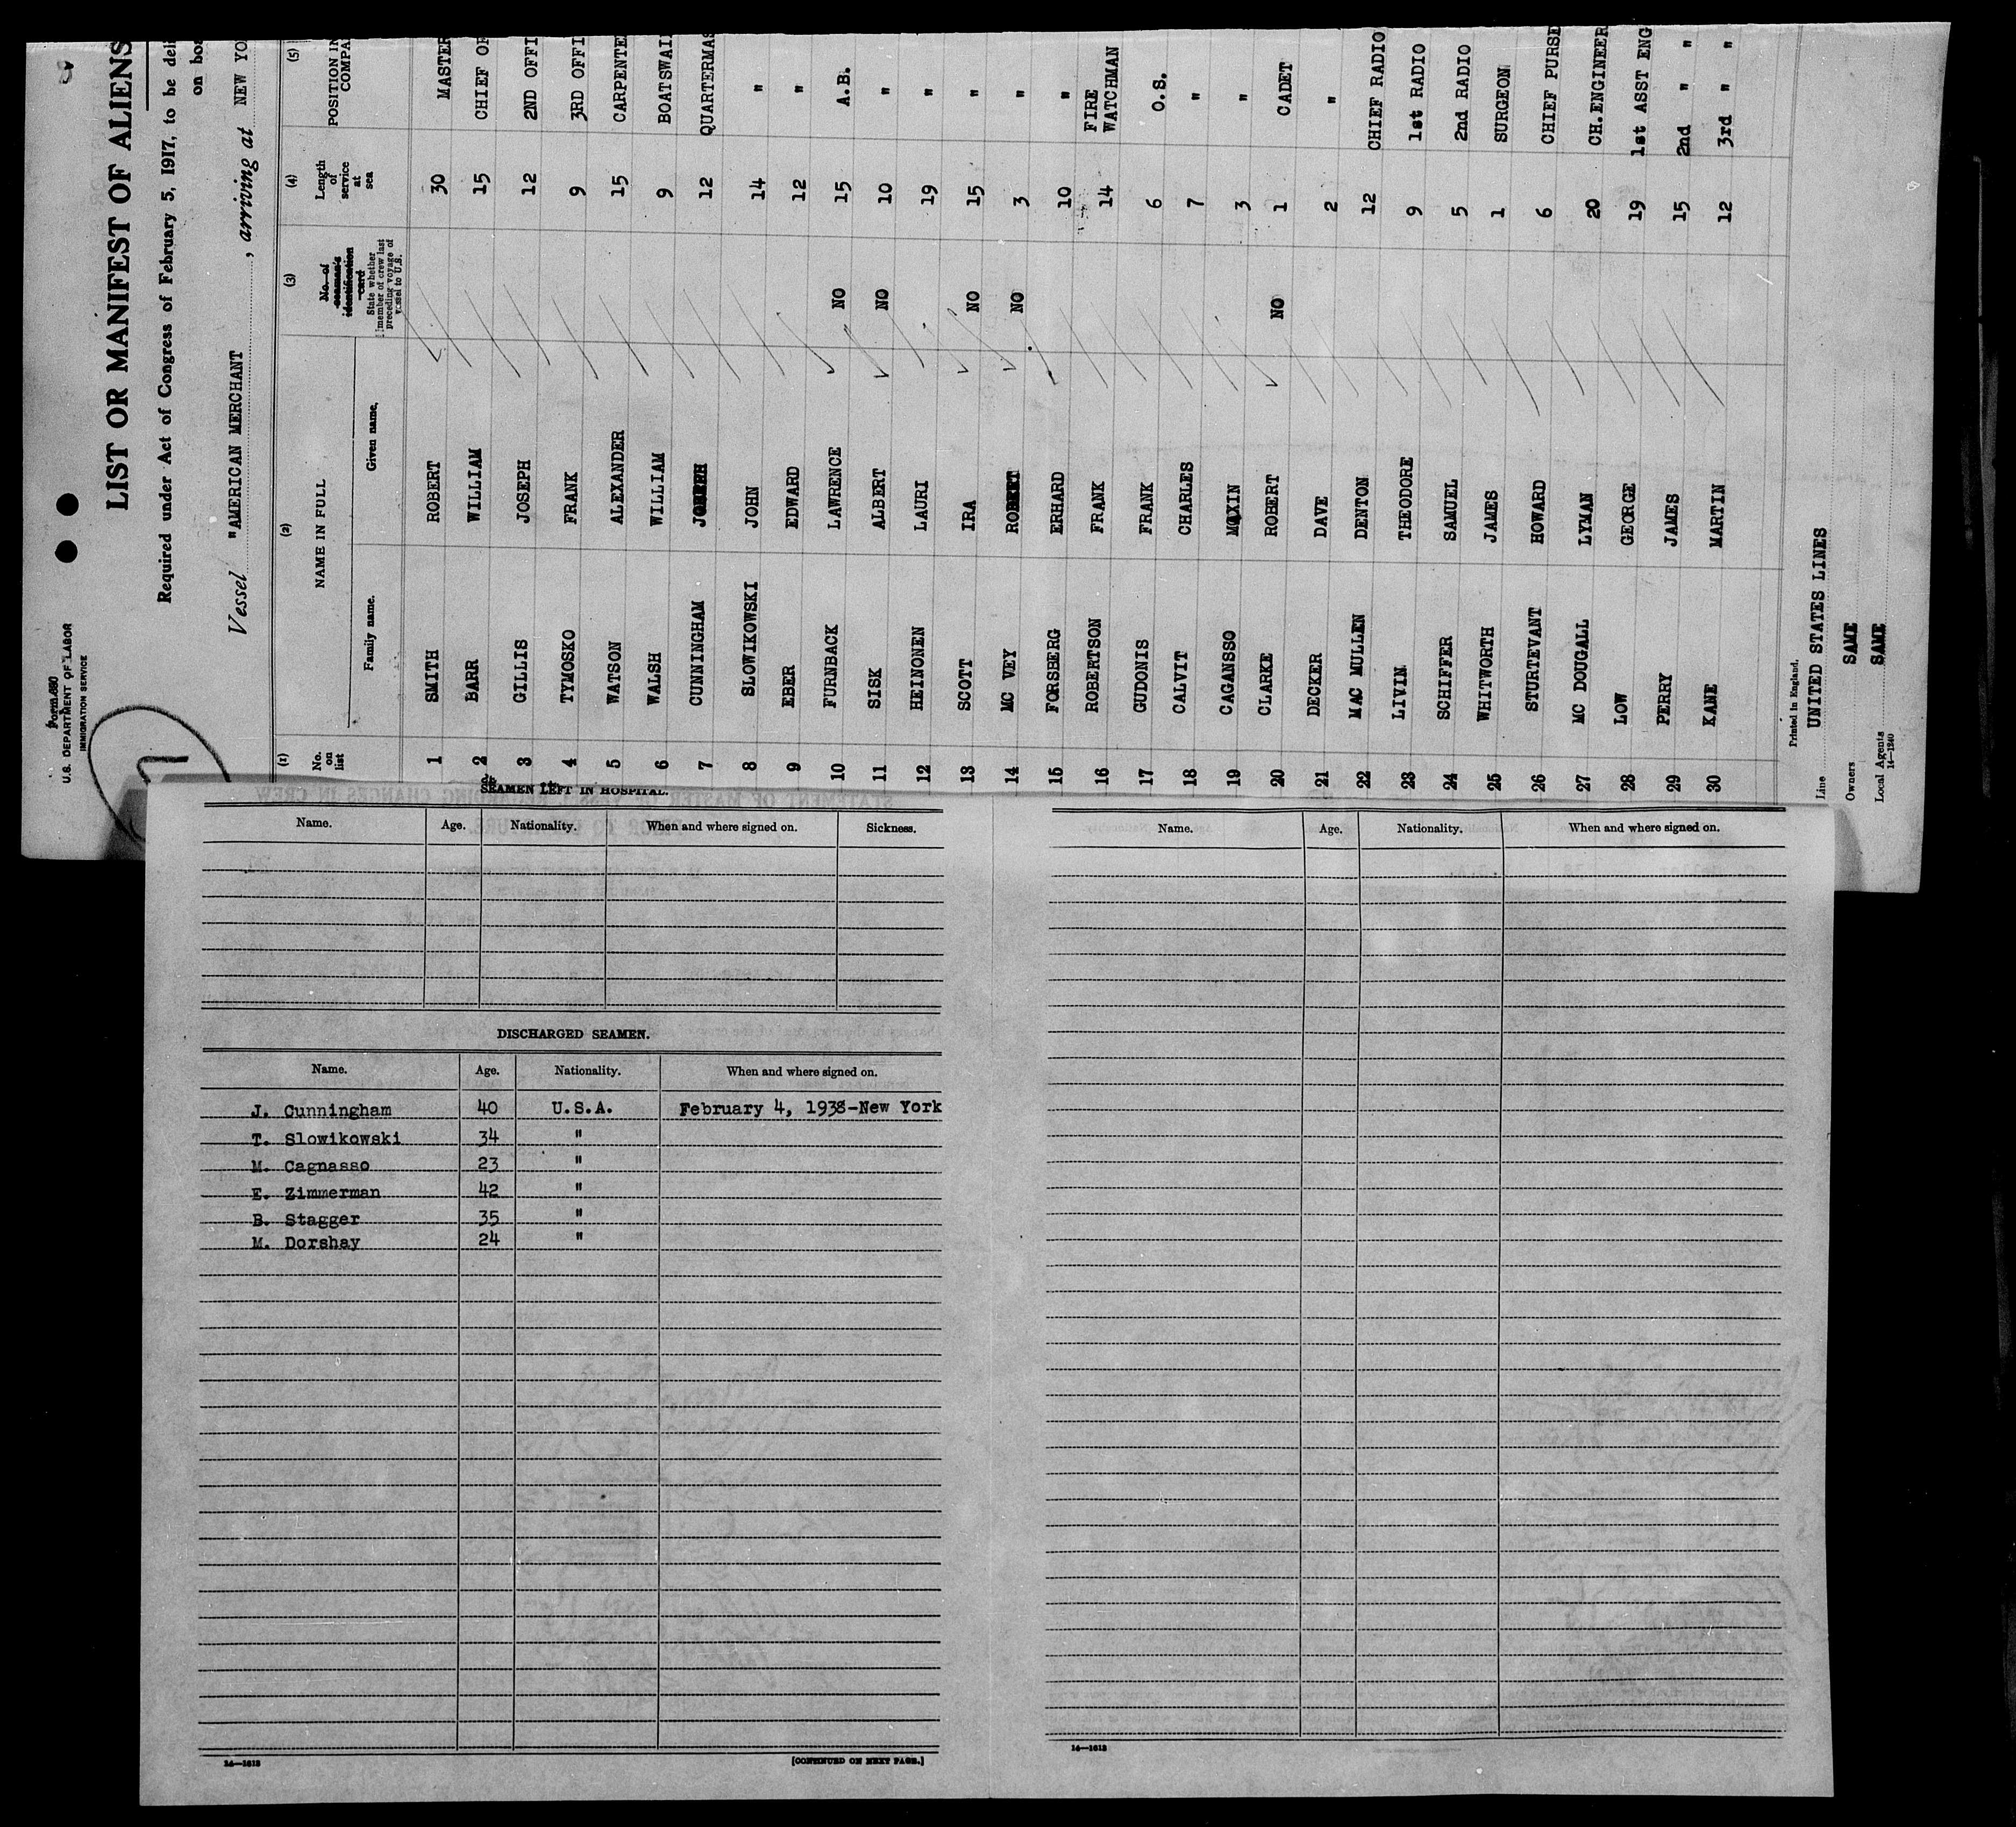 Form 680
U.S. DEPARTMENT OF LABOR
IMMIGRATION SERVICE
LIST OR MANIFEST OF ALIENS
Required under Act of Congress of February 5, 1917, to be deli
on boa
Vessel "AMERICAN MERCHANT , arriving at NEW YO
(1) (2) (3) (4) (5)
No. on list
NAME IN FULL
Family name. Given name.
No. of seaman's identification card
State whether member of crew last preceding voyage of vessel to U.S.
Length of service at sea
POSITION IN
COMPA
1 SMITH ROBERT 30 MASTER
2 BARR WILLIAM 15 CHIEF OF
3 GILLIS JOSEPH 12 2ND OFFI
4 TYMOSKO FRANK 9 3RD OFFI
5 WATSON ALEXANDER 15 CARPENTE
6 WALSH WILLIAM 9 BOATSWAI
7 CUNNINGHAM JOSEPH 12 QUARTERMAS
8 SLOWIKOWSKI JOHN 14 "
9 EBER EDWARD 12 "
10 FURNBACK LAWRENCE NO 15 A.B.
11 SISK ALBERT NO 10 "
12 HEINONEN LAURI 19 "
13 SCOTT IRA NO 15 "
14 MC VEY ROBERT NO 3 "
15 FORSBERG ERHARD 10 "
16 ROBERTSON FRANK 14 FIRE WATCHMAN
17 GUDONIS FRANK 6 O.S.
18 CALVIT CHARLES 7 "
19 CAGANSSO MAXIN 3 "
20 CLARKE ROBERT NO 1 CADET
21 DECKER DAVE 2 "
22 MAC MULLEN DENTON 12 CHIEF RADIO
23 LIVIN THEODORE 9 1st RADIO
24 SCHIFFER SAMUEL 5 2nd RADIO
25 WHITWORTH JAMES 1 SURGEON
26 STURTEVANT HOWARD 6 CHIEF PURSE
27 MC DOUGALL LYMAN 20 CH.ENGINEER
28 LOW GEORGE 19 1st ASST ENG
29 PERRY JAMES 15 2nd " "
30 KANE MARTIN 12 3rd " "
Printed in England.
Line UNITED STATES LINES
Owners SAME
Local Agents SAME
14—1240
SEAMEN LEFT IN HOSPITAL.
Name. Age. Nationality. When and where signed on. Sickness.
DISCHARGED SEAMEN.
Name. Age. Nationality. When and where signed on.
J. Cunningham 40 U.S.A. February 4, 1938-New York
T. Slowikowski 34 "
M. Cagnasso 23 "
E. Zimmerman 42 "
B. Stagger 35 "
M. Dorshay 24 "
14—1613 [CONTINUED ON NEXT PAGE.]
Name. Age. Nationality. When and where signed on.
14—1613